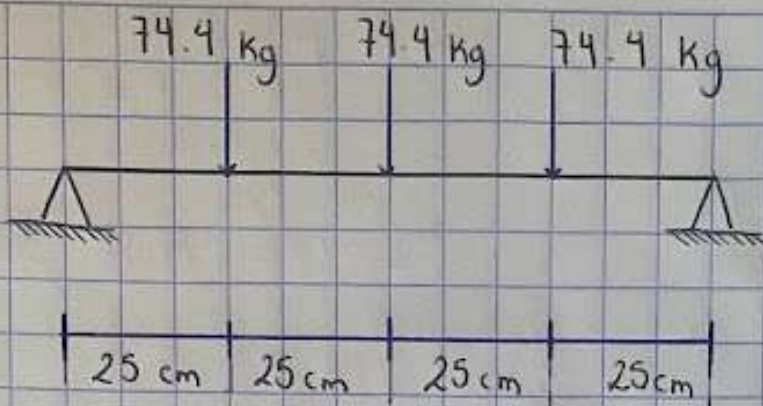 74.4 kg 74.4 kg 74.4 kg
25 cm 25cm 25cm 25cm